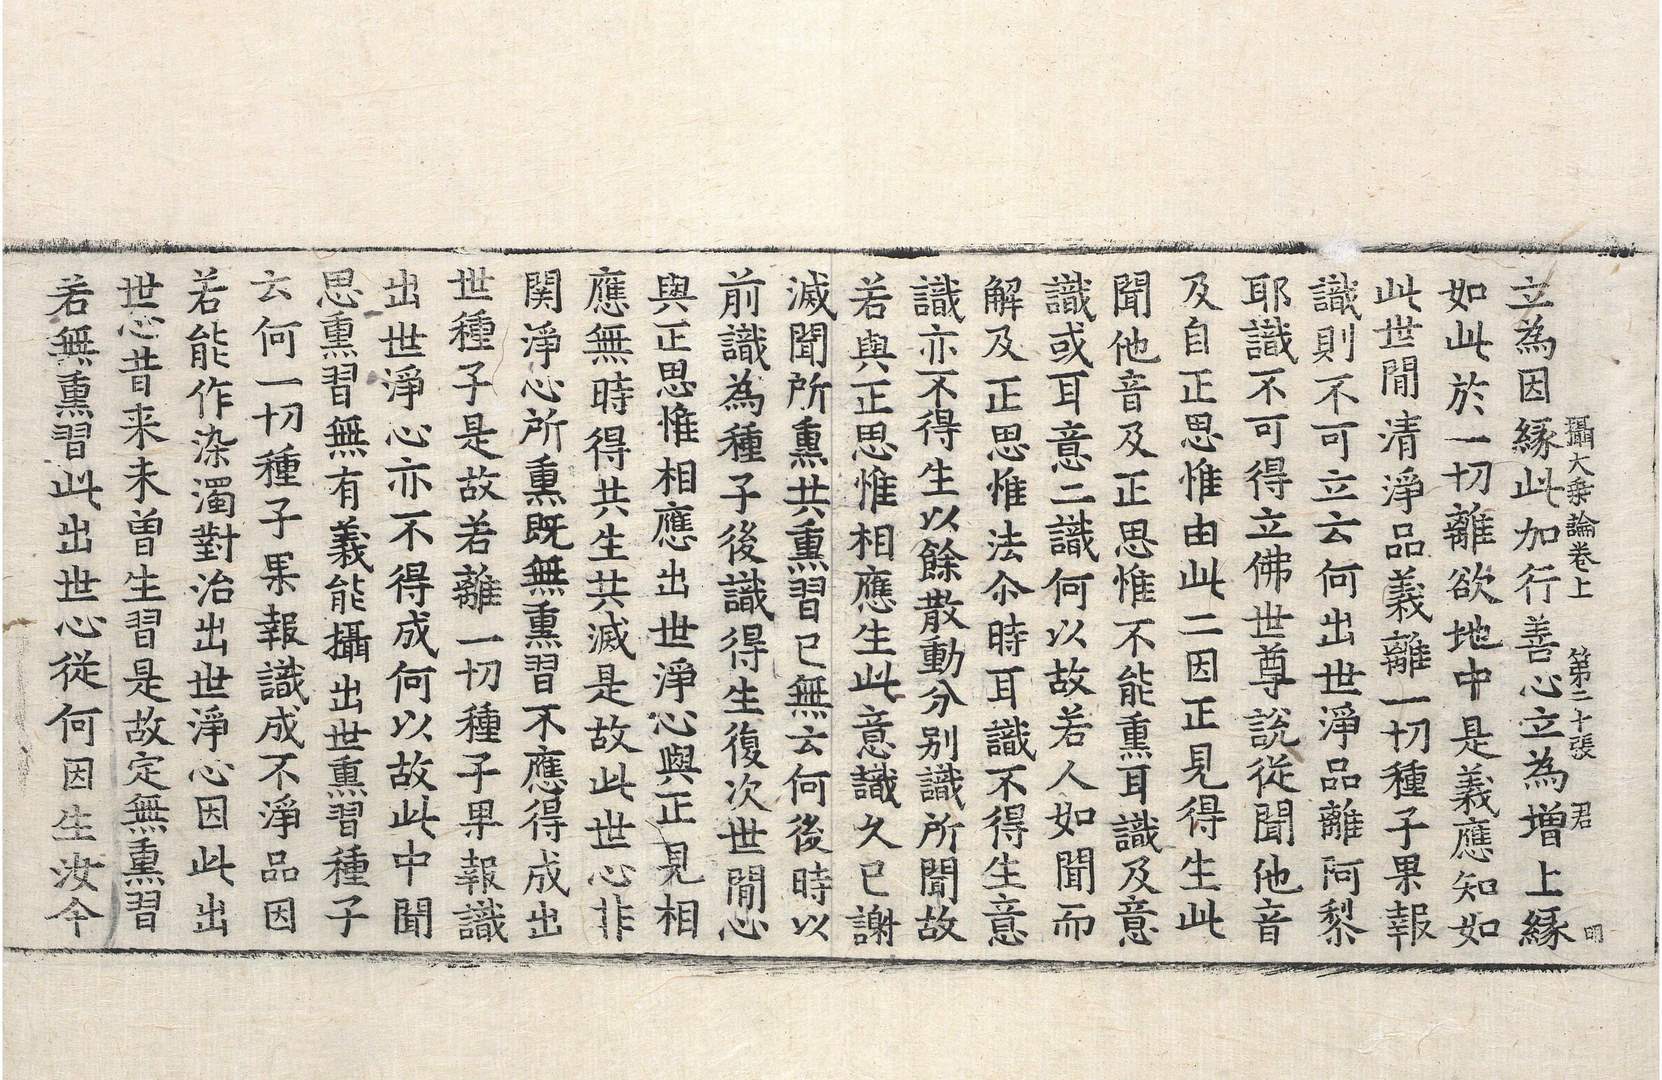 攝大乘論卷上　第二十張　君　明
立為因縁此加行善心立為增上縁
如此於一切離欲地中是義應知如
此世間清淨品義離一切種子果報
識則不可立云何出世淨品離阿黎
耶識不可得立佛世尊說從聞他音
及自正思惟由此二因正見得生此
聞他音及正思惟不能熏耳識及意
識或耳意二識何以故若人如聞而
解及正思惟法尒時耳識不得生意
識亦不得生以餘散動分别識所聞故
若與正思惟相應生此意識久已謝
滅聞所熏共熏習已無云何後時以
前識為種子後識得生復次世間心
與正思惟相應出世淨心與正見相
應無時得共生共滅是故此世心非
関淨心所熏既無熏習不應得成出
世種子是故若離一切種子果報識
出世淨心亦不得成何以故此中聞
思熏習無有義能攝出世熏習種子
云何一切種子果報識成不淨品因
若能作染濁對治出世淨心因此出
世心昔来未曾生習是故定無熏習
若無熏習此出世心從何因生汝今